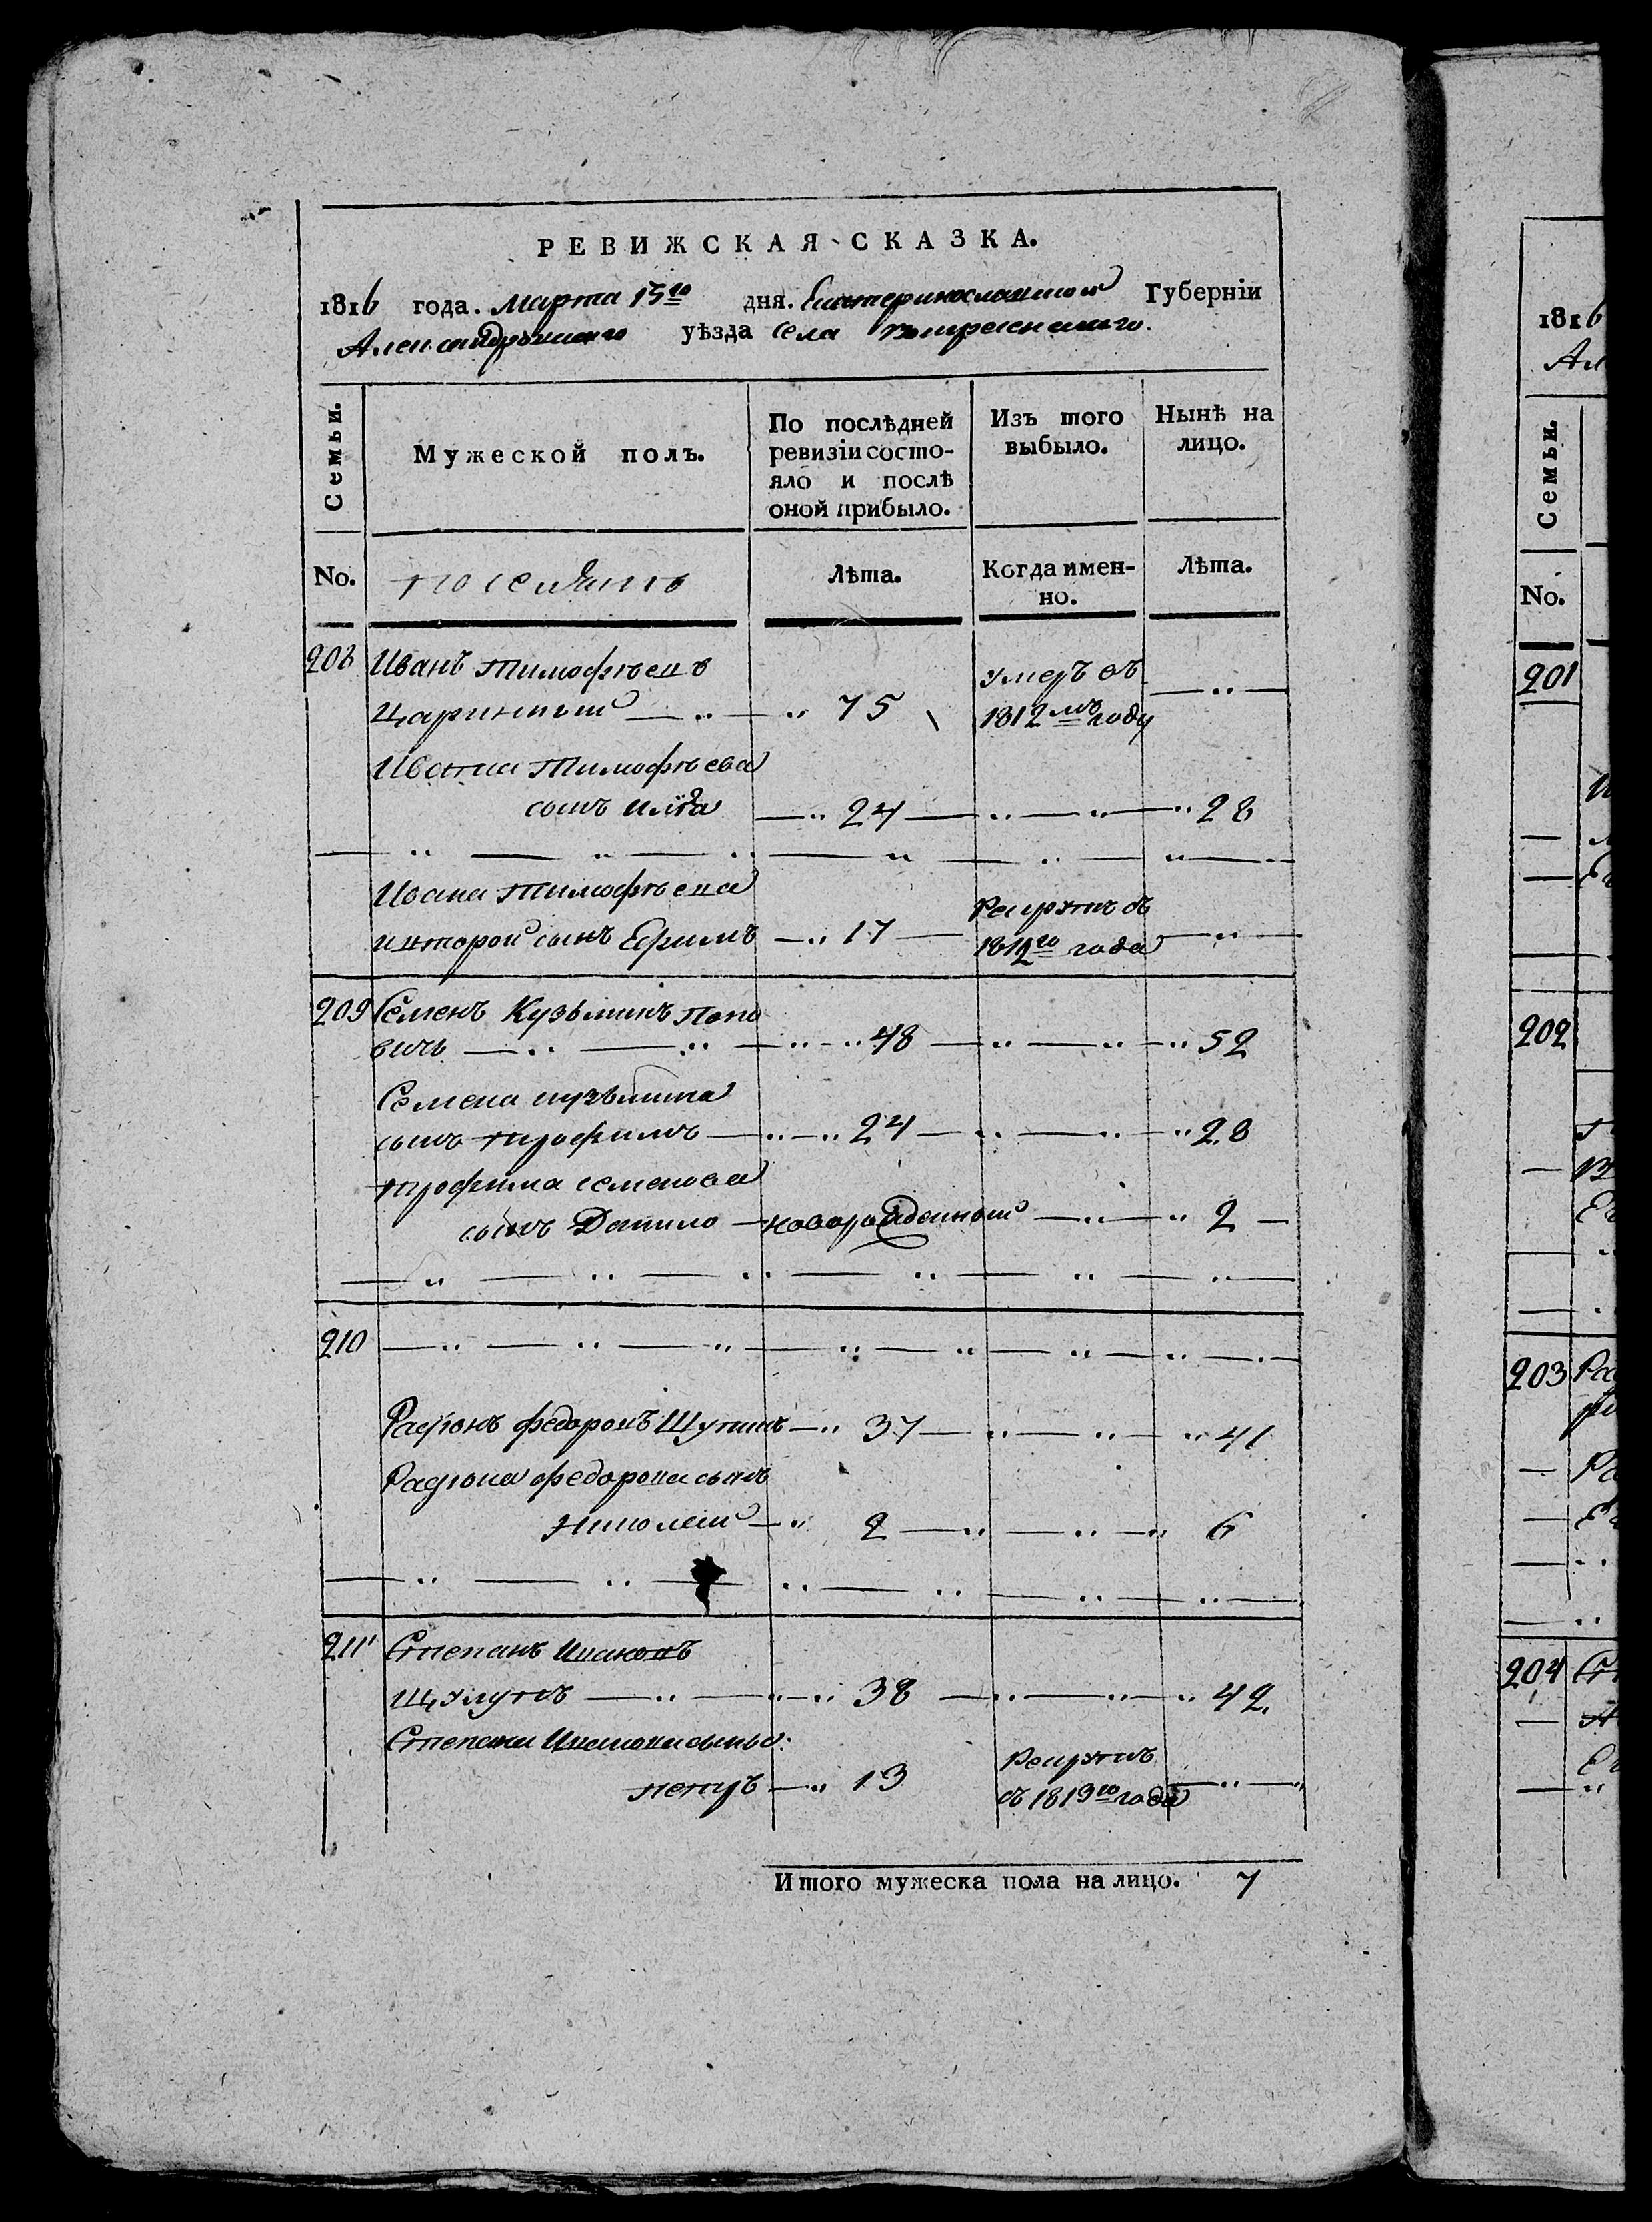 РЕВИЖСКАЯ СКАЗКА.
1816 года. Марта 15го дня. Екатеринославской Губерніи
Александровскаго уѣзда села Воскресенскаго.
Семьи.
Мужеской полъ.
По послѣдней
ревизіи состо-
яло и послѣ
оной прибыло.
Изъ того
выбыло.
Нынѣ на
лицо.
No. поселянъ Лѣта. Когда имен-
но. Лѣта.
208 Иванъ Тимофѣевъ
Царинный 75 умеръ въ
1812мъ году
Ивана Тимофѣева
сынъ 24 28
Ивана Тимофѣева
второй сынъ Ефимъ 17 Рекрутъ съ
1812го года
209 Семенъ Кузьминъ Попо
вичъ 48 52
Семена Кузьмина
сынъ Трофимъ 24 28
Трофима Семенова
сынъ Данило новорожденной 2
210
Радіонъ Федоровъ 37 41
Радіона Федорова сынъ
Николай 2 6
211 Степанъ Иваковъ
38 42.
Степана сынъ
петръ 13 Рекрутъ
съ 1813го года
Итого мужеска пола на лицо. 7
1816
Ал
Семьи.
No.
201
202
203 Ра
204 Ст